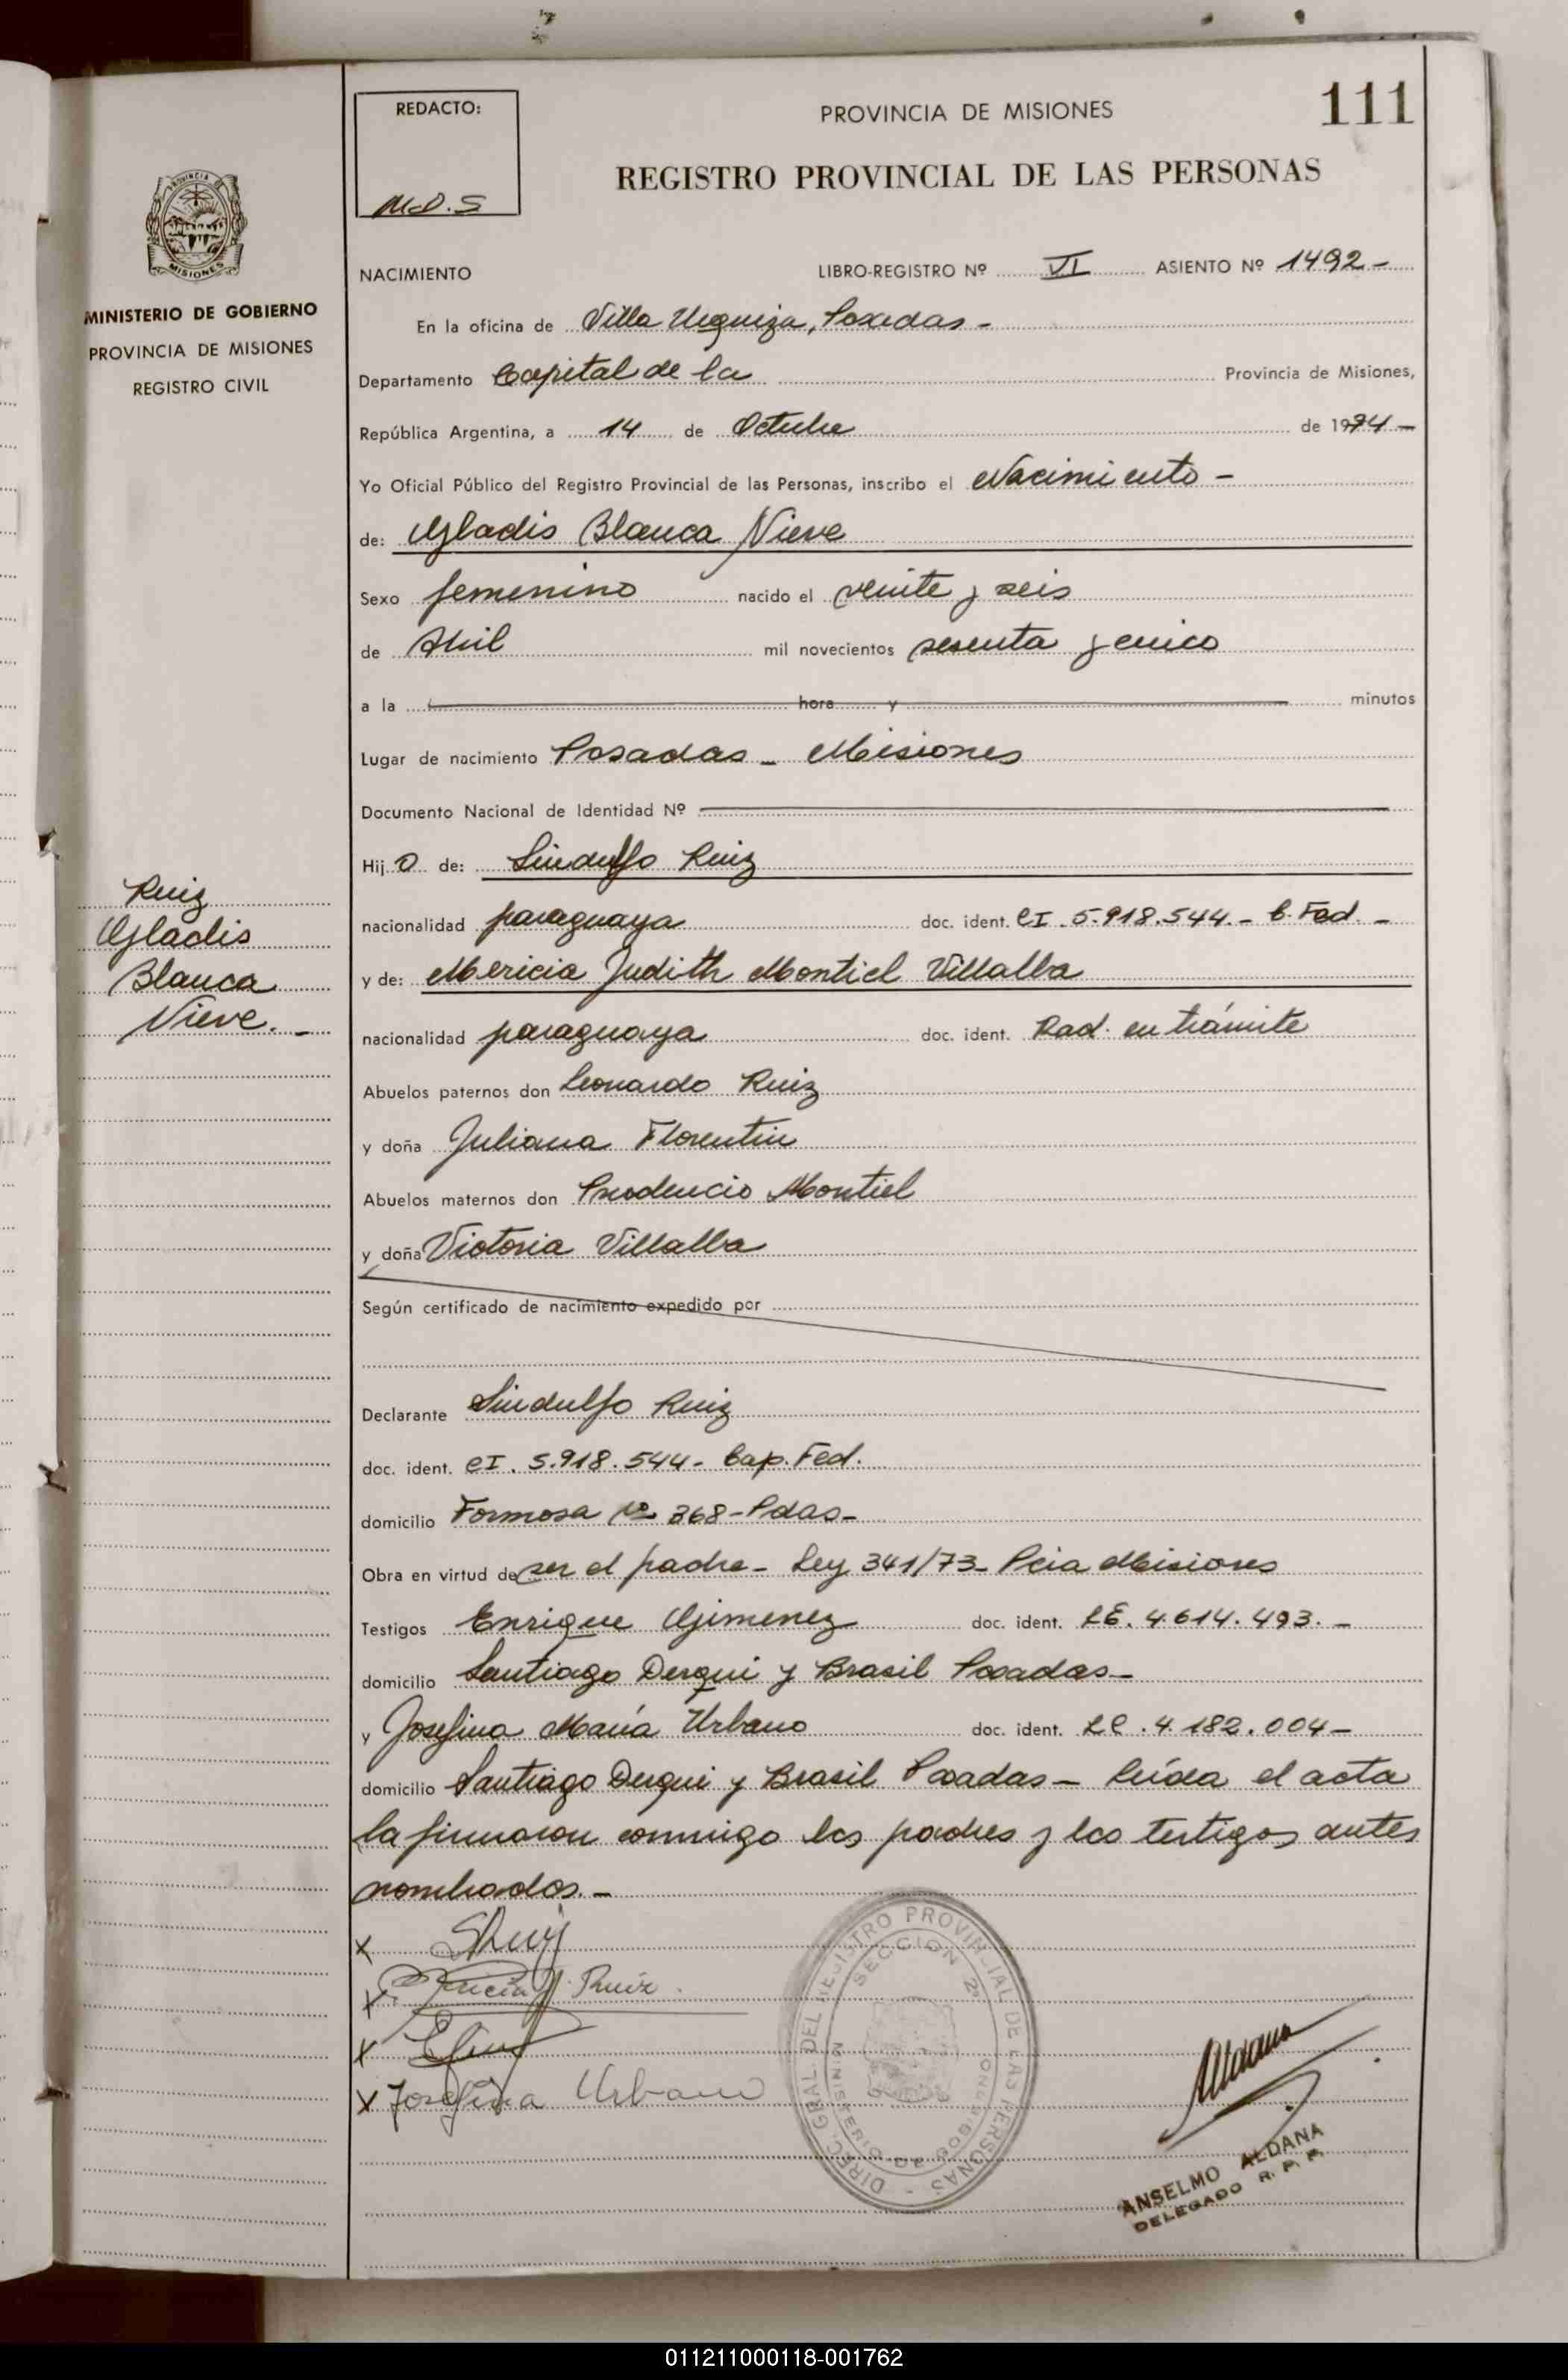 REDACTO:
M.D.S
PROVINCIA DE MISIONES
111
REGISTRO PROVINCIAL DE LAS PERSONAS
PROVINCIA DE
MISIONES
MINISTERIO DE GOBIERNO
PROVINCIA DE MISIONES
REGISTRO CIVIL
NACIMIENTO LIBRO-REGISTRO Nº VI ASIENTO Nº 1492-
En la oficina de Villa Urquiza, Posadas-
Departamento Capital de la Provincia de Misiones,
República Argentina, a 14 de Octubre de 1974-
Yo Oficial Público del Registro Provincial de las Personas, inscribo el Nacimiento-
de: Gladis Blanca Nieve
Sexo femenino nacido el veinte y seis
de Abril mil novecientos sesenta y cinco
a la hora y minutos
Lugar de nacimiento Posadas - Misiones
Documento Nacional de Identidad Nº
Hij o de: Sindulfo Ruiz
nacionalidad paraguaya doc. ident. CI. 5.918.544.- C. Fed.-
y de: Mericia Judith Montiel Villalba
nacionalidad paraguaya doc. ident. Rad. en trámite
Abuelos paternos don Leonardo Ruiz
y doña Juliana Florentin
Abuelos maternos don Prudencio Montiel
y doña Victoria Villalba
Según certificado de nacimiento expedido por
Declarante Sindulfo Ruiz
doc. ident. CI. 5.918.544- Cap. Fed.
domicilio Formosa Nº 368-Pdas-
Obra en virtud de ser el padre- Ley 341/73- Pcia Misiones
Testigos Enrique Gimenez doc. ident. LE. 4.614.493.-
domicilio Santiago Derqui y Brasil Posadas-
y Josefina María Urbano doc. ident. LC. 4.182.004-
domicilio Santiago Derqui y Brasil Posadas- Leída el acta
la firmaron conmigo los padres y los testigos antes
nombrados.-
Ruiz
Gladis
Blanca
Nieve.-
x SRuiz
x J. Ruiz
x
x Josefina Urbano
DIREC. GRAL DEL REGISTRO PROVINCIAL DE LAS PERSONAS -
SECCION 2ª
MINISTERIO DE GOBIERNO
Aldana
ANSELMO ALDANA
DELEGADO R. P. P.
011211000118-001762